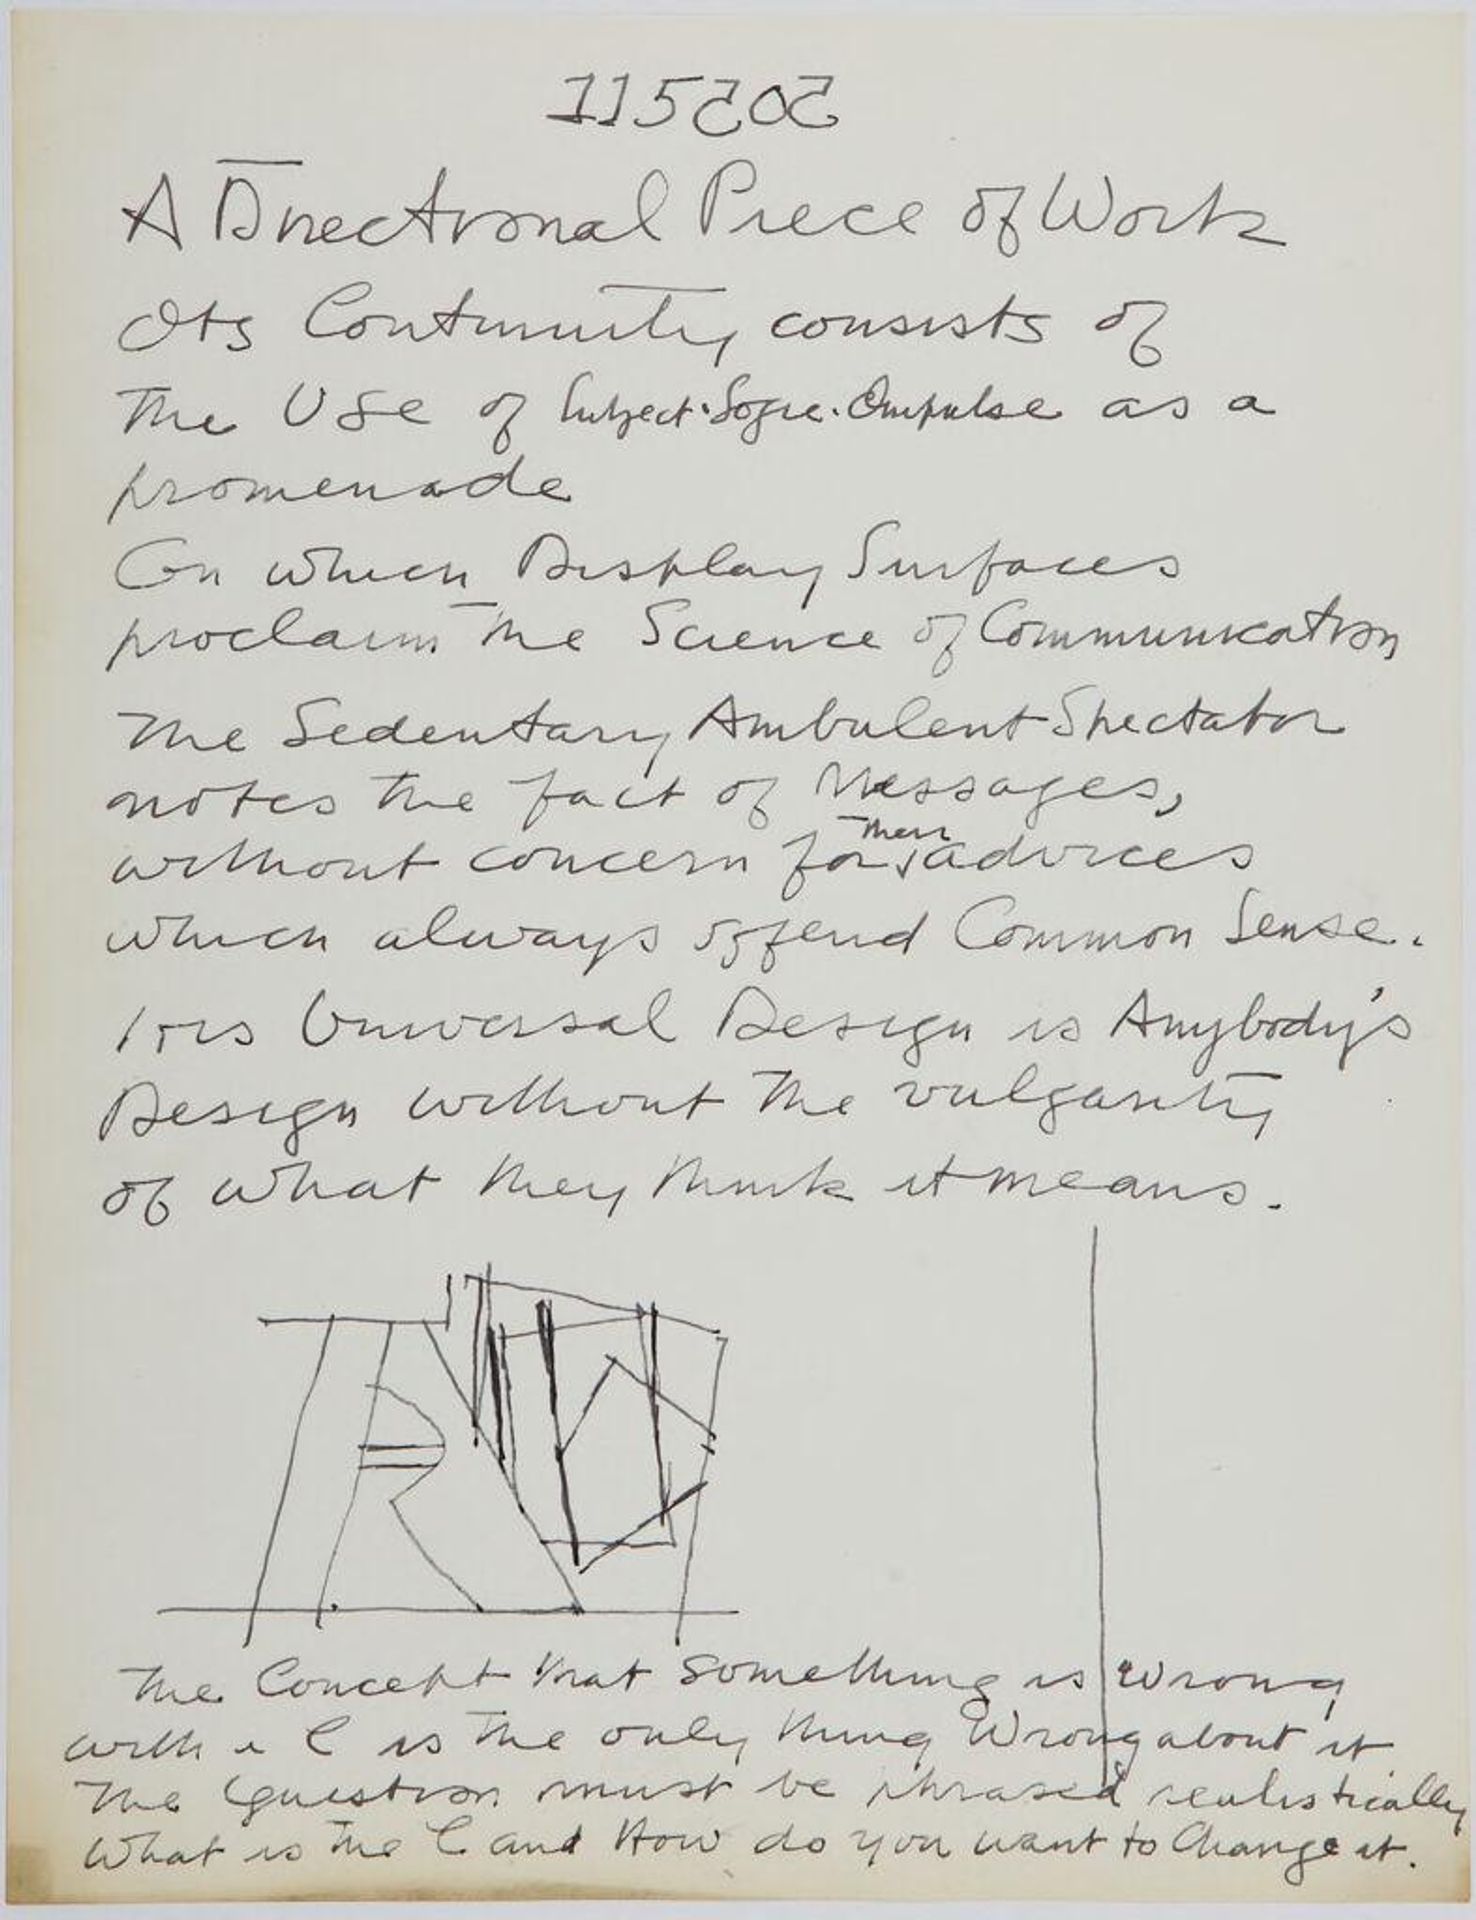 115202
A Directional Piece of Work
Its Continuity consists of
The Use of Subject· ·Impulse as a
promenade
On which Display Surfaces
proclaim the Science of Communication
The Sedentary Ambulent Spectator
notes the fact of Messages,
without concern for their advices
which always offend Common Sense.
Universal Design is Anybody's
Design without the vulgarity
of what they think it means.
The Concept that something is Wrong
with a C is the only thing Wrong about it
The Question must be phrased realistically
What is the C and How do you want to Change it.